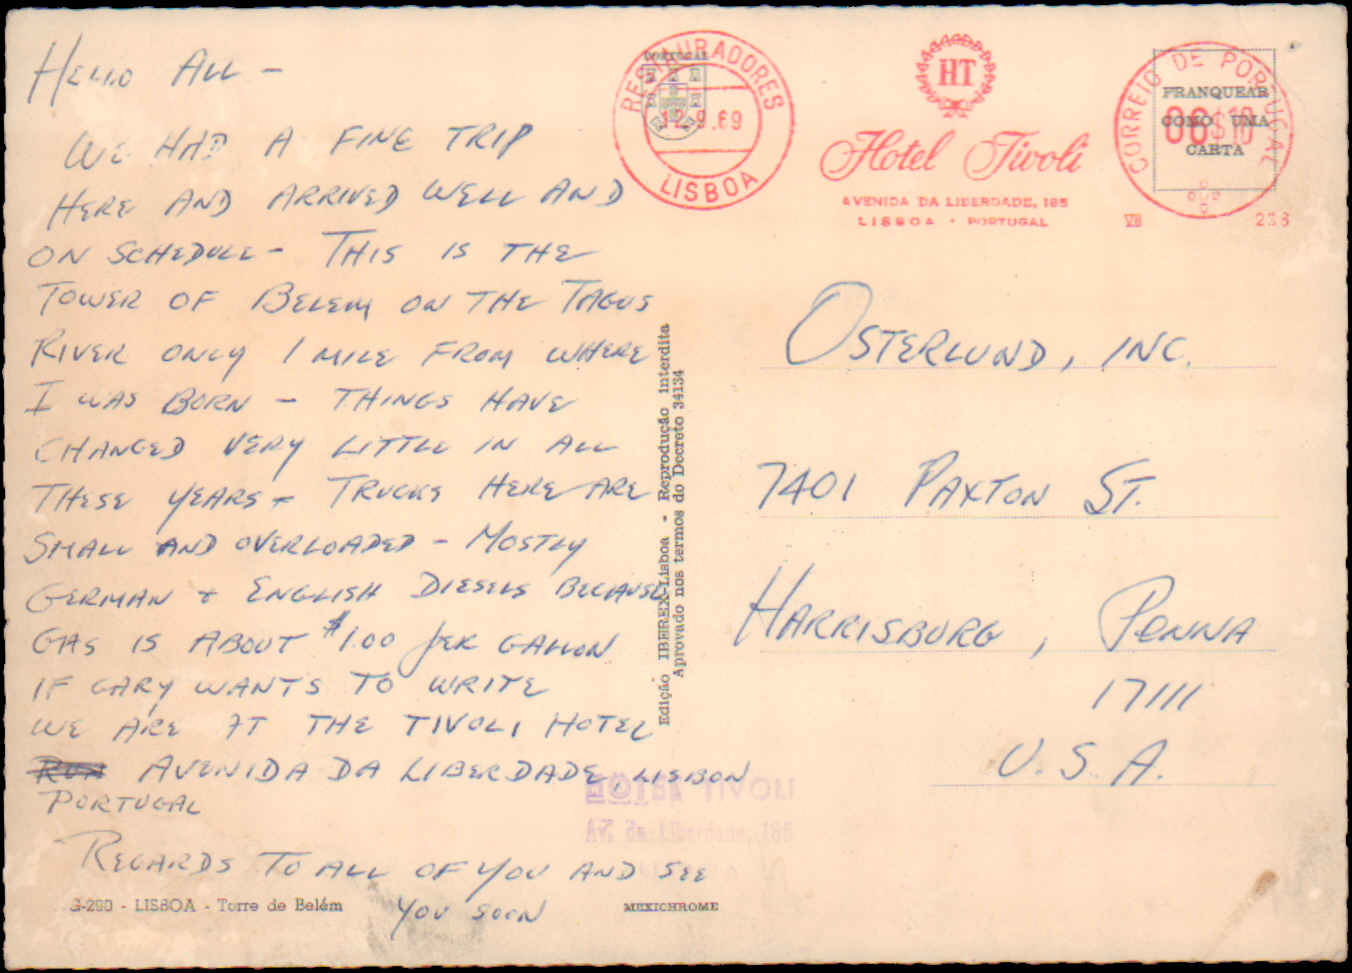 Hello All -
We had a fine trip
here and arrived well and
on schedule - This is the
Tower of Belem on the Tagus
River only 1 mile from where
I was born - Things have
changed very little in all
these years - Trucks here are
small and overloaded - Mostly
German + English Diesels because
gas is about $1.00 per gallon
If Gary wants to write
we are at the Tivoli Hotel
Avenida da Liberdade, Lisbon
Portugal
Regards to all of you and see
you soon
G-290 - LISBOA - Torre de Belém
MEXICHROME
Edição IBEREX-Lisboa - Reprodução interdita
Aprovado nos termos do Decreto 34134
RESTAURADORES
PORTUGAL
.9.69
LISBOA
HT
Hotel Tivoli
AVENIDA DA LIBERDADE, 185
LISBOA • PORTUGAL
CORREIO DE PORTUGAL
FRANQUEAR
COMO UMA
CARTA
00$10
Osterlund, Inc.
7401 Paxton St.
Harrisburg, Penna
17111
U.S.A.
HOTEL TIVOLI
Av. da Liberdade, 185